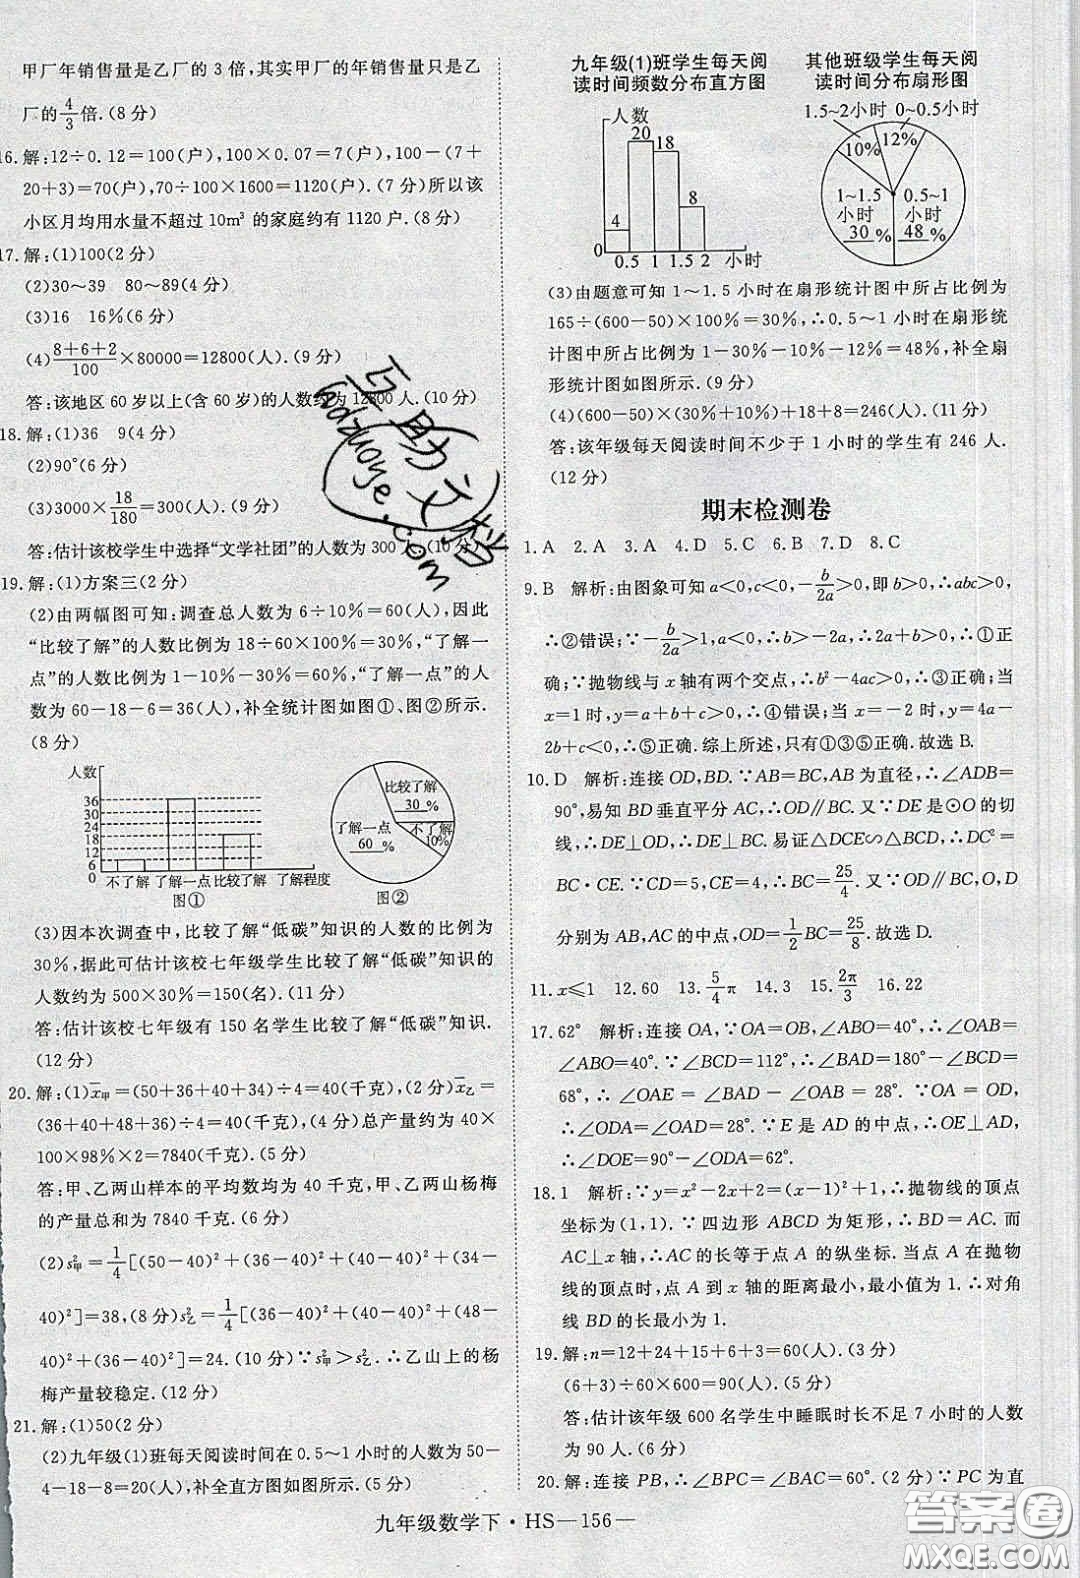 甲厂年销售量是乙厂的 3 倍,其实甲厂的年销售量只是乙
厂的4/3倍.(8 分)
16.解:12÷0.12=100(户),100×0.07=7(户),100-(7+
20+3)=70(户),70÷100×1600=1120(户).(7 分)所以该
小区月均用水量不超过 10m³ 的家庭约有 1120 户.(8 分)
17.解:(1)100(2 分)
(2)30～39 80～89(4 分)
(3)16 16%(6 分)
(4)(8+6+2)/100×80000=12800(人).(9 分)
答:该地区 60 岁以上(含 60 岁)的人数约为 12800 人.(10 分)
18.解:(1)36 9(4 分)
(2)90°(6 分)
(3)3000×18/180=300(人).(9 分)
答:估计该校学生中选择“文学社团”的人数为 300 人.(10 分)
19.解:(1)方案三(2 分)
(2)由两幅图可知:调查总人数为 6÷10%=60(人),因此
“比较了解”的人数比例为 18÷60×100%=30%,“了解一
点”的人数比例为 1-10%-30%=60%,“了解一点”的人
数为 60-18-6=36(人),补全统计图如图①、图②所示.
(8 分)
人数
36
30
24
18
12
6
0
不了解 了解一点 比较了解 了解程度
图①
比较了解
30 %
了解一点
60 %
不了解
10%
图②
(3)因本次调查中,比较了解“低碳”知识的人数的比例为
30%,据此可估计该校七年级学生比较了解“低碳”知识的
人数约为 500×30%=150(名).(11 分)
答:估计该校七年级有 150 名学生比较了解“低碳”知识.
(12 分)
20.解:(1)x̄甲=(50+36+40+34)÷4=40(千克),(2 分)x̄乙=
(36+40+48+36)÷4=40(千克),(4 分)总产量约为 40×
100×98%×2=7840(千克).(5 分)
答:甲、乙两山样本的平均数均为 40 千克,甲、乙两山杨梅
的产量总和为 7840 千克.(6 分)
(2)s²甲=1/4[(50-40)²+(36-40)²+(40-40)²+(34-
40)²]=38,(8 分)s²乙=1/4[(36-40)²+(40-40)²+(48-
40)²+(36-40)²]=24.(10 分)∵s²甲>s²乙∴乙山上的杨
梅产量较稳定.(12 分)
21.解:(1)50(2 分)
(2)九年级(1)班每天阅读时间在 0.5～1 小时的人数为 50-
4-18-8=20(人),补全直方图如图所示.(5 分)
九年级(1)班学生每天阅
读时间频数分布直方图
人数
20
18
8
4
0
0.5 1 1.5 2 小时
其他班级学生每天阅
读时间分布扇形图
1.5～2小时 0～0.5小时
10% 12%
1～1.5
小时
30 %
0.5～1
小时
48 %
(3)由题意可知 1～1.5 小时在扇形统计图中所占比例为
165÷(600-50)×100%=30%,∴0.5～1 小时在扇形统
计图中所占比例为 1-30%-10%-12%=48%,补全扇
形统计图如图所示.(9 分)
(4)(600-50)×(30%+10%)+18+8=246(人).(11 分)
答:该年级每天阅读时间不少于 1 小时的学生有 246 人.
(12 分)
期末检测卷
1.A 2.A 3.A 4.D 5.C 6.B 7.D 8.C
9.B 解析:由图象可知a<0,c<0,-b/2a>0,即b>0,∴abc>0,
∴②错误;∵-b/2a>1,a<0,∴b>-2a,∴2a+b>0,∴①正
确;∵抛物线与 x 轴有两个交点,∴b²-4ac>0,∴③正确;当
x=1 时,y=a+b+c>0,∴④错误;当 x=-2 时,y=4a-
2b+c<0,∴⑤正确.综上所述,只有①③⑤正确.故选 B.
10.D 解析:连接 OD,BD.∵AB=BC,AB为直径,∴∠ADB=
90°,易知 BD 垂直平分 AC,∴OD∥BC.又∵DE 是⊙O 的切
线,∴DE⊥OD,∴DE⊥BC.易证△DCE∽△BDC,∴DC²=
BC·CE.∵CD=5,CE=4,∴BC=25/4.又∵OD∥BC,O,D
分别为 AB,AC 的中点,∴OD=1/2BC=25/8.故选 D.
11.x≤1 12.60 13.5/4π 14.3 15.2π/3 16.22
17.62° 解析:连接 OA,∵OA=OB,∠ABO=40°,∴∠OAB=
∠ABO=40°.∵∠BCD=112°,∴∠BAD=180°-∠BCD=
68°,∴∠OAE=∠BAD-∠OAB=28°.∵OA=OD,
∴∠ODA=∠OAD=28°.∵E 是 AD 的中点,∴OE⊥AD,
∴∠DOE=90°-∠ODA=62°.
18.1 解析:∵y=x²-2x+2=(x-1)²+1,∴抛物线的顶点
坐标为(1,1).∵四边形 ABCD 为矩形,∴BD=AC.而
AC⊥x 轴,∴AC的长等于点 A 的纵坐标.当点 A 在抛物
线的顶点时,点 A 到 x 轴的距离最小,最小值为 1.∴对角
线 BD 的长最小为 1.
19.解:n=12+24+15+6+3=60(人).(3 分)
(6+3)÷60×600=90(人).(5 分)
答:估计该年级 600 名学生中睡眠时长不足 7 小时的人数
为 90 人.(6 分)
20.解:连接 PB,∴∠BPC=∠BAC=60°.(2 分)∵PC 为直
九年级数学下·HS—156—
互助文档
hdzuoye.com
答案圈
MXQE.COM